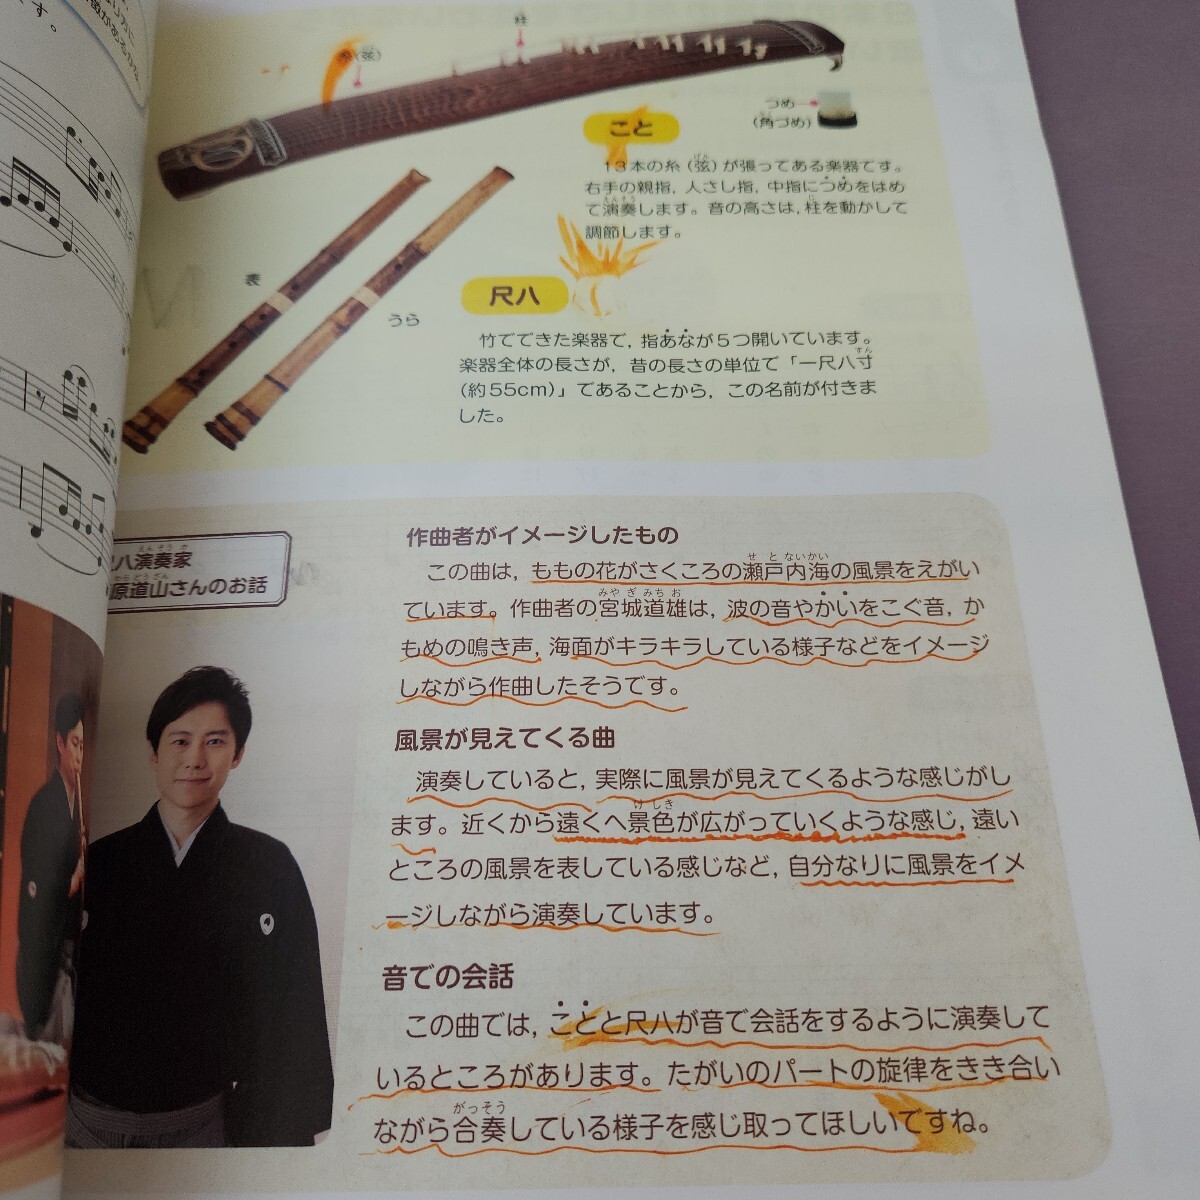 す。
柱
糸(弦)
つめ
(角づめ)
こと
13本の糸(弦)が張ってある楽器です。
右手の親指,人さし指,中指につめをはめ
て演奏します。音の高さは,柱を動かして
調節します。
表
うら
尺八
竹でできた楽器で,指あなが5つ開いています。
楽器全体の長さが,昔の長さの単位で「一尺八寸
(約55cm)」であることから,この名前が付きま
した。
八演奏家
原道山さんのお話
作曲者がイメージしたもの
この曲は,ももの花がさくころの瀬戸内海の風景をえがい
ています。作曲者の宮城道雄は,波の音やかいをこぐ音,か
もめの鳴き声,海面がキラキラしている様子などをイメージ
しながら作曲したそうです。
風景が見えてくる曲
演奏していると,実際に風景が見えてくるような感じがし
ます。近くから遠くへ景色が広がっていくような感じ,遠い
ところの風景を表している感じなど,自分なりに風景をイメ
ージしながら演奏しています。
音での会話
この曲では,ことと尺八が音で会話をするように演奏して
いるところがあります。たがいのパートの旋律をきき合い
ながら合奏している様子を感じ取ってほしいですね。